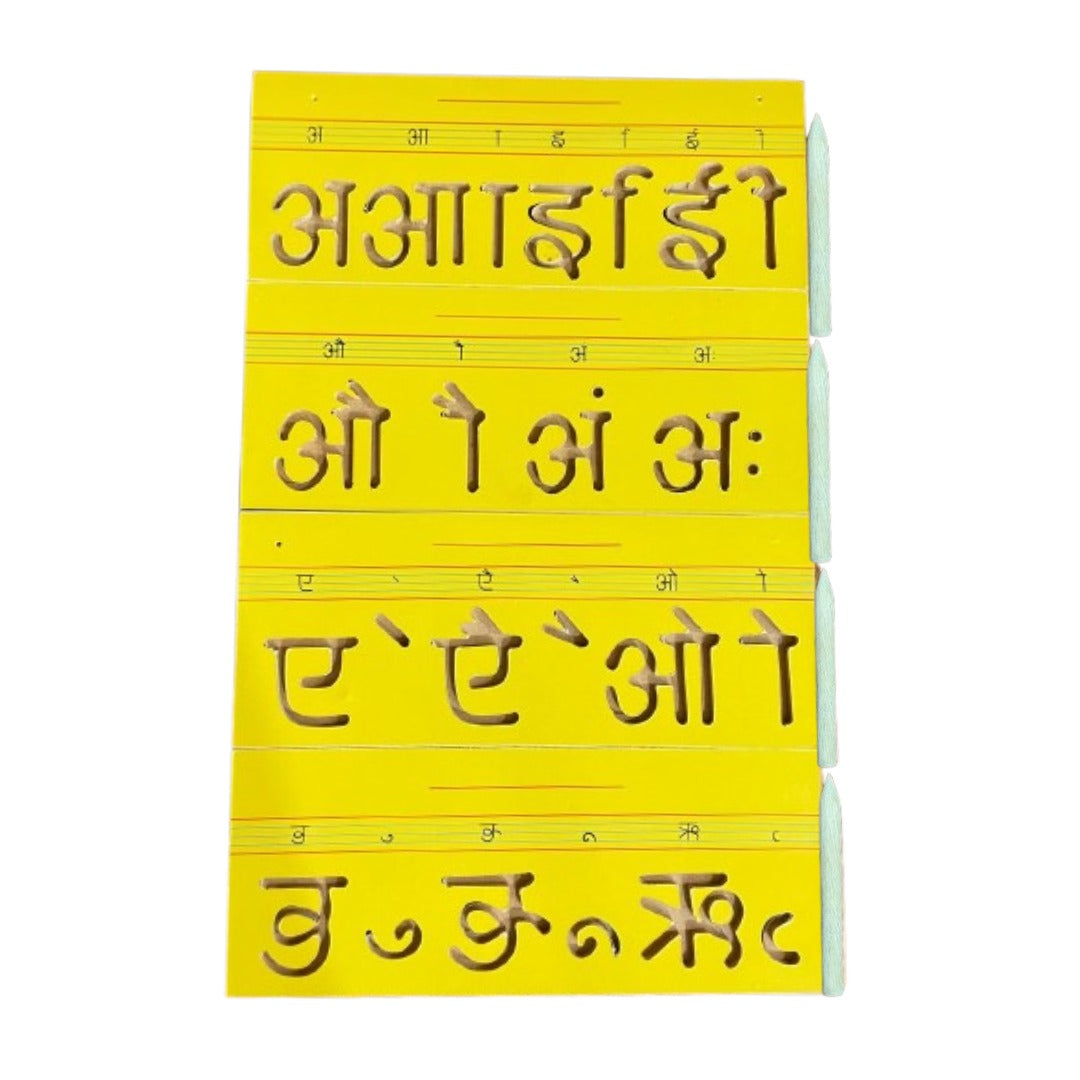 अ आ ा इ ि ई ी
अ आ ा इ ि ई ी
औ ौ अं अः
औ ौ अं अः
ए े ऐ ै ओ ो
ए े ऐ ै ओ ो
उ ु ऊ ू ऋ ृ
उ ु ऊ ू ऋ ृ